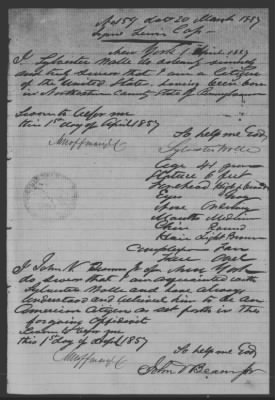 No 159 Sent 20 March 1857
New York 1 April 1857
I Sylvester Wolle do solemnly
and truly swear that I am a Citizen
of the United States having been born
in Northampton County State of
Sworn to before me
this 1st day of April 1857
So help me God
Sylvester Wolle
Age 41 years
Stature 6 feet
Forehead High &
Eyes Gray
Nose
Mouth Medium
Chin Round
Hair Light Brown
Complexion Fair
Face Oval
I John V. of New York
do swear that I am acquainted with
Sylvester Wolle and have always
understood and believed him to be an
American Citizen as set forth in the
foregoing Affidavit
Sworn to before me
this 1st day of April 1857
So help me God
John V